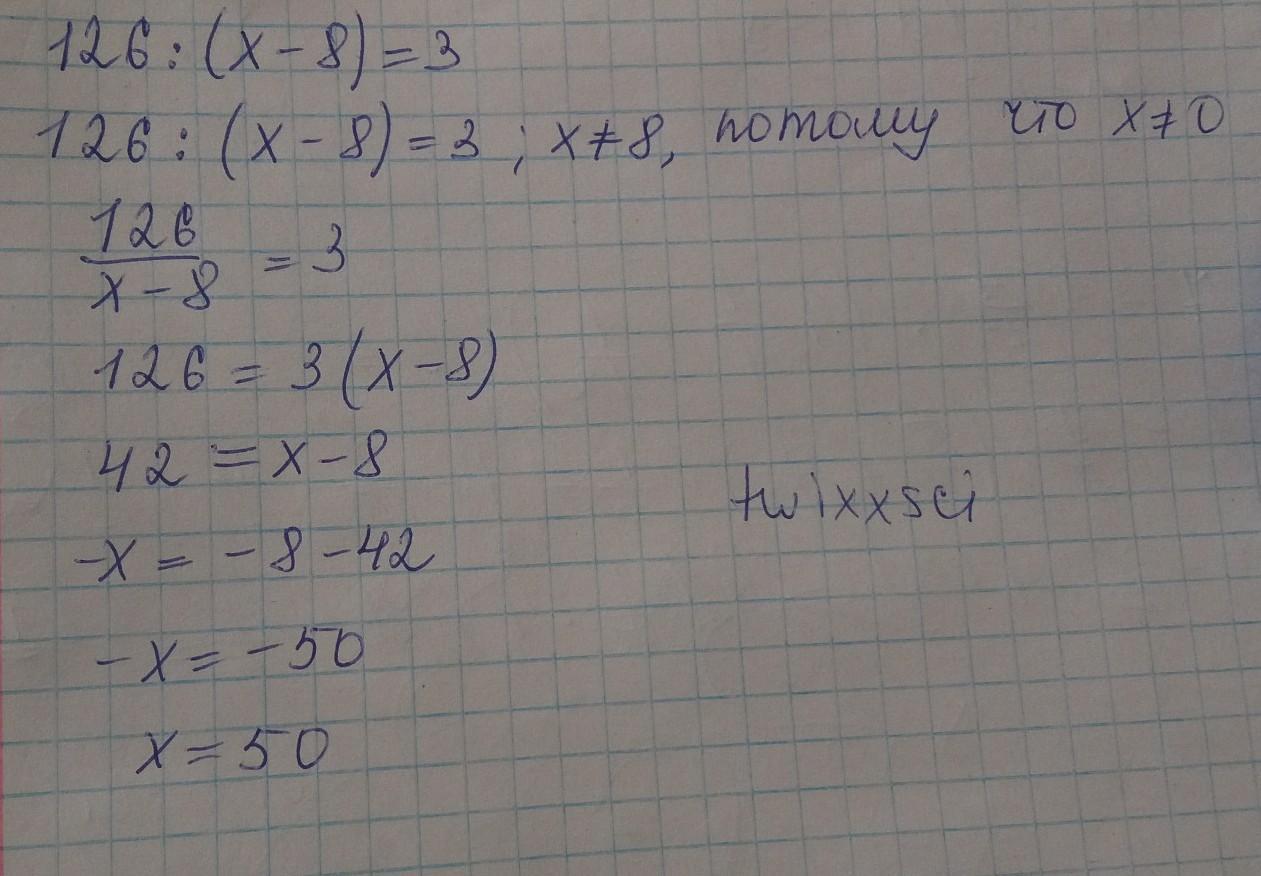 126 : (x - 8) = 3
126 : (x - 8) = 3 ; x ≠ 8, потому что x ≠ 0
126
x - 8 = 3
126 = 3 (x - 8)
42 = x - 8
-x = - 8 - 42
twixxsci
- x = - 50
x = 50